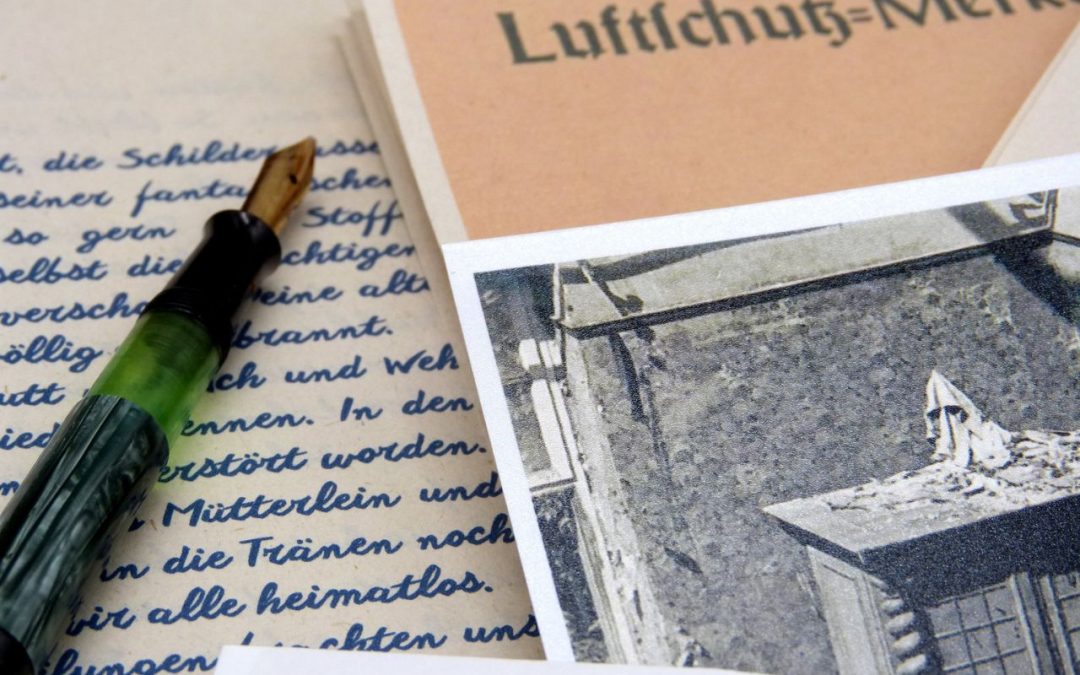 Luftſchutz=Merk
t, die Schilder
seiner
so gern Stoff
selbst die chtigen
versch eine alt
völlig brannt.
utt ch und Weh
ied ennen. In den
erstört worden.
Mütterlein und
in die Tränen noch
wir alle heimatlos.
ilungen brachten uns